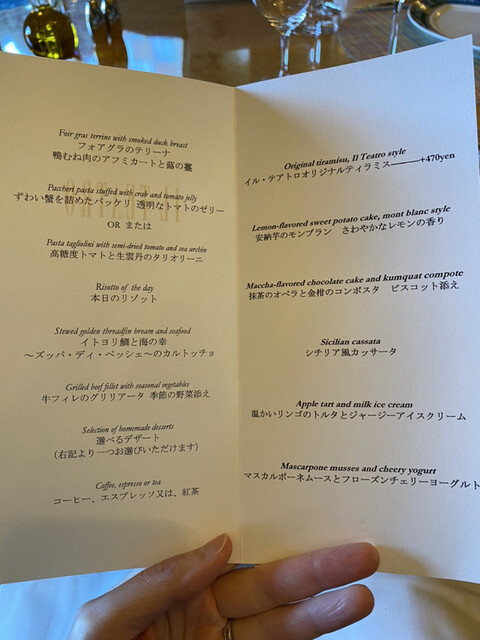 Foir gras terrine with smoked duck breast
フォアグラのテリーナ
鴨むね肉のアフミカートと蕗の薹
Paccheri pasta stuffed with crab and tomato jelly
ずわい蟹を詰めたパッケリ 透明なトマトのゼリー
OR または
Pasta tagliolini with semi-dried tomato and sea urchin
高糖度トマトと生雲丹のタリオリーニ
Risotto of the day
本日のリゾット
Stewed golden threadfin bream and seafood
イトヨリ鯛と海の幸
～ズッパ・ディ・ペッシェ～のカルトッチョ
Grilled beef fillet with seasonal vegetables
牛フィレのグリリアータ 季節の野菜添え
Selection of homemade desserts
選べるデザート
(右記より一つお選びいただけます)
Coffee, espresso or tea
コーヒー、エスプレッソ又は、紅茶
Original tiramisu, Il Teatro style
イル・テアトロオリジナルティラミス―――+470yen
Lemon-flavored sweet potato cake, mont blanc style
安納芋のモンブラン さわやかなレモンの香り
Maccha-flavored chocolate cake and kumquat compote
抹茶のオペラと金柑のコンポスタ ビスコット添え
Sicilian cassata
シチリア風カッサータ
Apple tart and milk ice cream
温かいリンゴのトルタとジャージーアイスクリーム
Mascarpone musses and cheery yogurt
マスカルポーネムースとフローズンチェリーヨーグルト